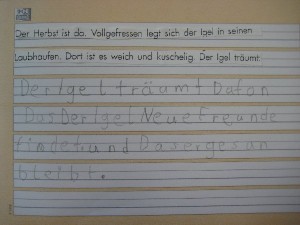 Der Herbst ist da. Vollgefressen legt sich der Igel in seinen
Laubhaufen. Dort ist es weich und kuschelig. Der Igel träumt:
Der Igel träumt Dafan
Das Der Igel Neue Freunde
findet und Das er gesan
bleibt.